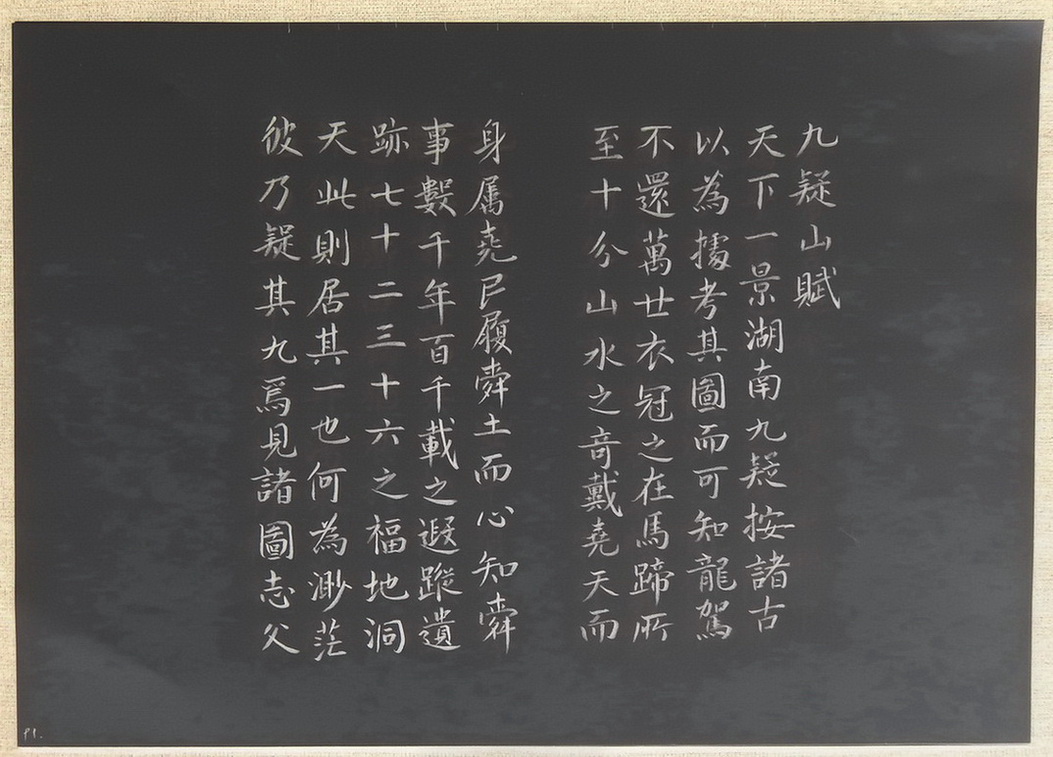 九疑山賦
天下一景湖南九疑按諸古
以為據考其圖而可知龍駕
不還萬世衣冠之在馬蹄所
至十分山水之竒戴堯天而
身属堯民履舜土而心知舜
事數千年百千載之遐蹤遺
跡七十二三十六之福地洞
天此則居其一也何為渺茫
彼乃疑其九焉見諸圖志父
P1.